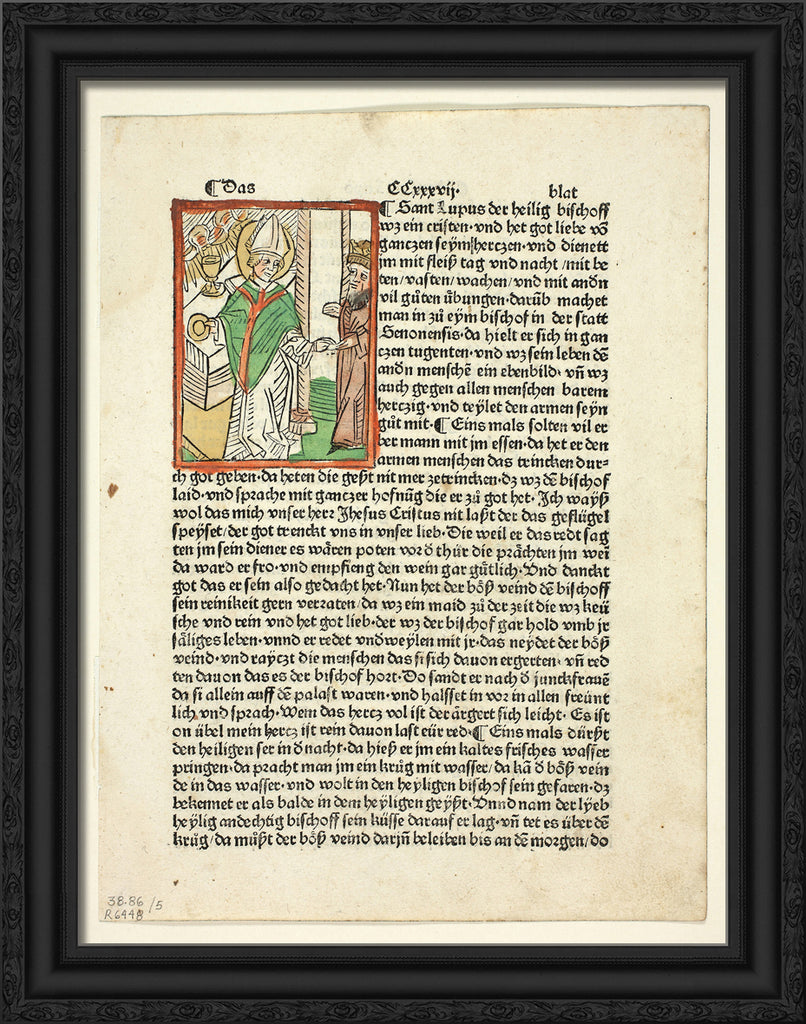 ¶ Das CCxxxvij. blat
¶ Sant Lupus der heilig bischoff
wz ein cristen·vnd het got liebe võ
ganczen seym herczen·vnd dienett
jm mit fleiß tag vnd nacht/mit be
ten/vasten/wachen/vnd mit andn
vil gůten übungen·darüb machet
man in zů eym bischof in der statt
Senonensis·da hielt er sich in gan
czen tugenten·vnd wz sein leben dẽ
andn menschẽ ein ebenbild· vñ wz
auch gegen allen menschen barem
herczig·vnd teylet den armen seyn
gůt mit·¶ Eins mals solten vil er
ber mann mit jm essen·da het er den
armen menschen das trincken dur-
ch got geben·da heten die gest nit mer zetrincken·dz wz dẽ bischof
laid·vnd sprache mit ganczer hofnũg die er zů got het· Ich wayß
wol das mich vnser herr Jhesus Cristus nit laßt der das geflügel
speyset/der got trenckt vns in vnser lieb·Die weil er das redt sag
ten jm sein diener es wären poten vor d thür die prächten jm wein
da ward er fro·vnd empfieng den wein gar gůtlich·Vnd danckt
got das er sein also gedacht het·Nun het der böß veind dẽ bischoff
sein reinikeit gern verraten/da wz ein maid zů der zeit die wz keü
sche vnd rein vnd het got lieb·der wz der bischof gar hold vmb jr
säliges leben·vnnd er redet vndweylen mit jr·das neydet der böß
veind·vnd rayczt die menschen das si sich dauon ergerten· vñ red
ten dauon das es der bischof hort·Do sandt er nach d junckfrauẽ
da si allein auff dẽ palast waren·vnd halsset in vor in allen freünt
lich vnd sprach·Wem das hercz vol ist der ärgert sich leicht· Es ist
on übel mein hercz ist rein dauon last eür red·¶ Eins mals dürst
den heiligen ser in d nacht·da hieß er jm ein kaltes frisches wasser
pringen·da pracht man jm ein krůg mit wasser/da kã d böß vein
de in das wasser·vnd wolt in den heyligen bischof sein gefaren·dz
bekennet er als balde in dem heyligen geyst·Vnnd nam der lyeb
heylig andechtig bischoff sein küsse darauf er lag·vñ tet es über dẽ
krůg/da můst der böß veind darjñ beleiben bis an dẽ morgen/do
38.86 /5
R6448